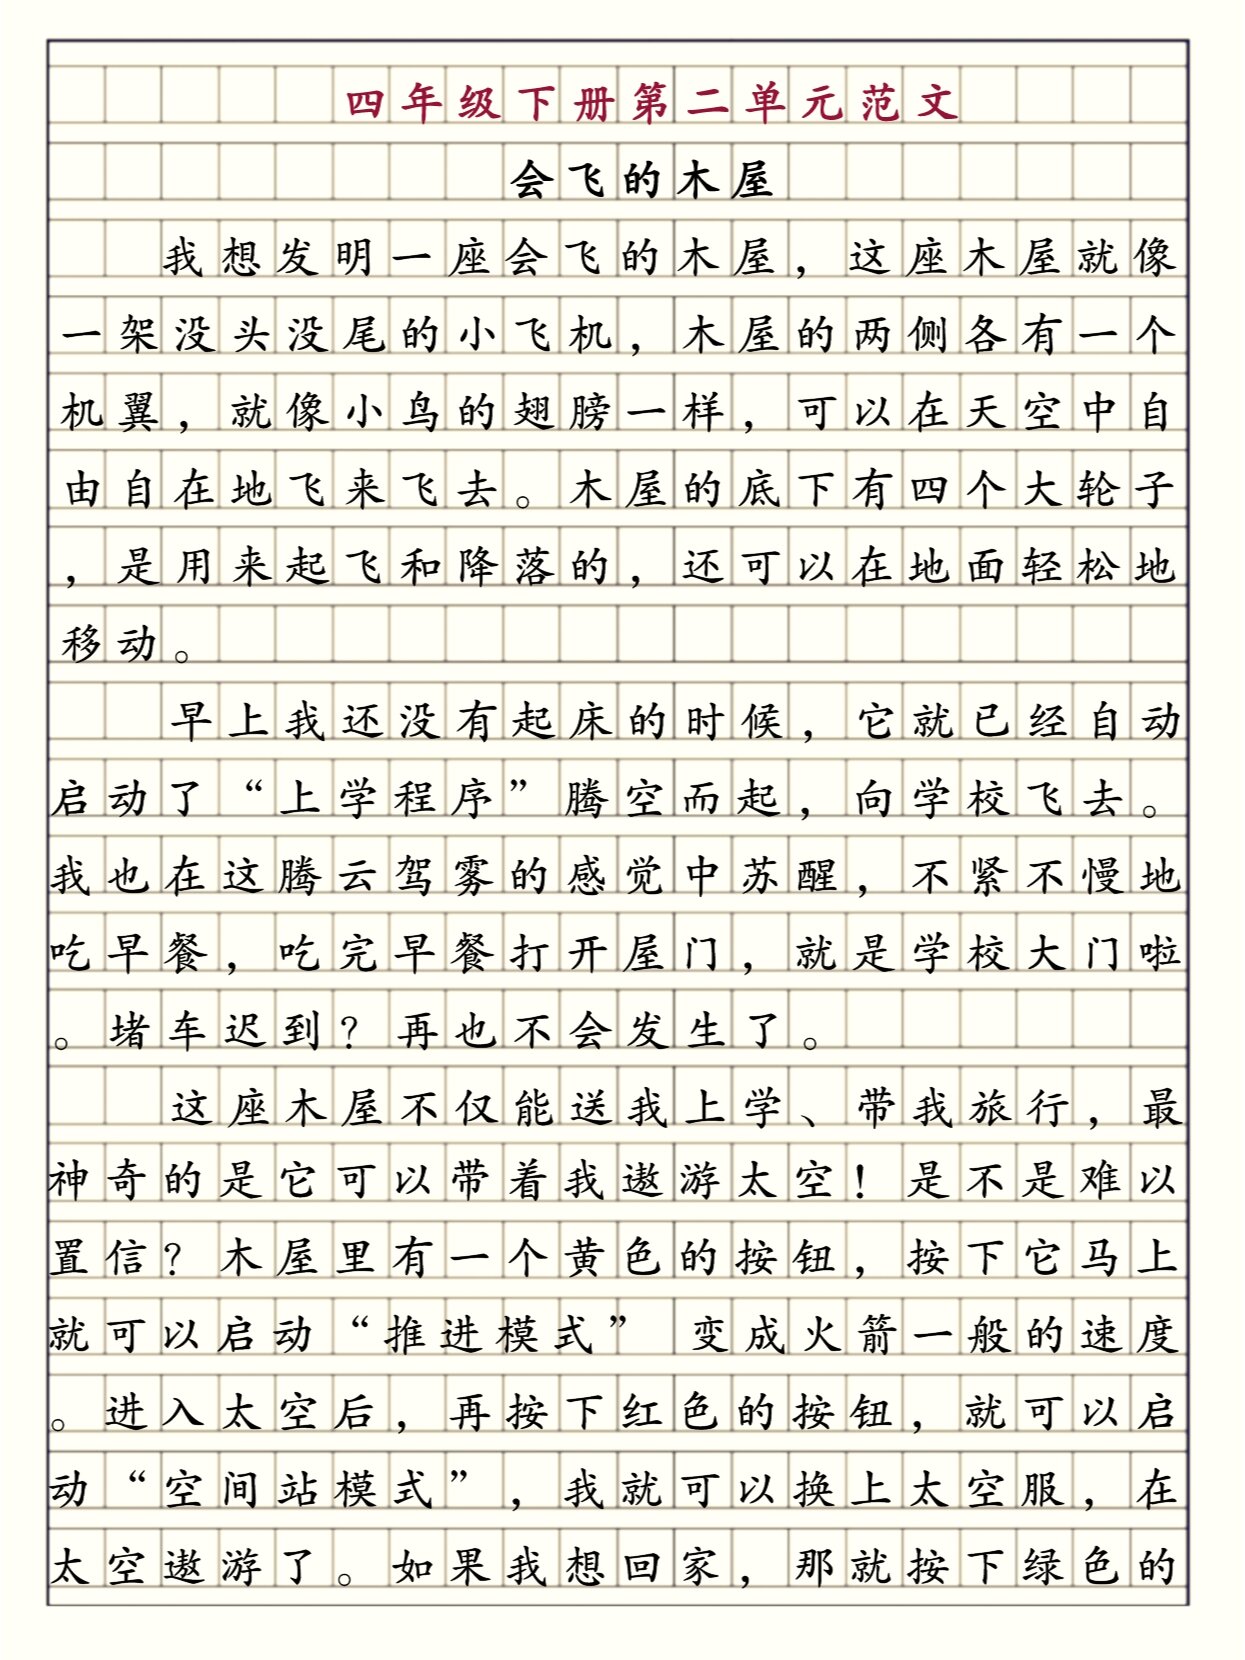 四年级下册第二单元范文
会飞的木屋
我想发明一座会飞的木屋，这座木屋就像
一架没头没尾的小飞机，木屋的两侧各有一个
机翼，就像小鸟的翅膀一样，可以在天空中自
由自在地飞来飞去。木屋的底下有四个大轮子
，是用来起飞和降落的，还可以在地面轻松地
移动。
早上我还没有起床的时候，它就已经自动
启动了“上学程序”腾空而起，向学校飞去。
我也在这腾云驾雾的感觉中苏醒，不紧不慢地
吃早餐，吃完早餐打开屋门，就是学校大门啦
。堵车迟到？再也不会发生了。
这座木屋不仅能送我上学、带我旅行，最
神奇的是它可以带着我遨游太空！是不是难以
置信？木屋里有一个黄色的按钮，按下它马上
就可以启动“推进模式” 变成火箭一般的速度
。进入太空后，再按下红色的按钮，就可以启
动“空间站模式”，我就可以换上太空服，在
太空遨游了。如果我想回家，那就按下绿色的